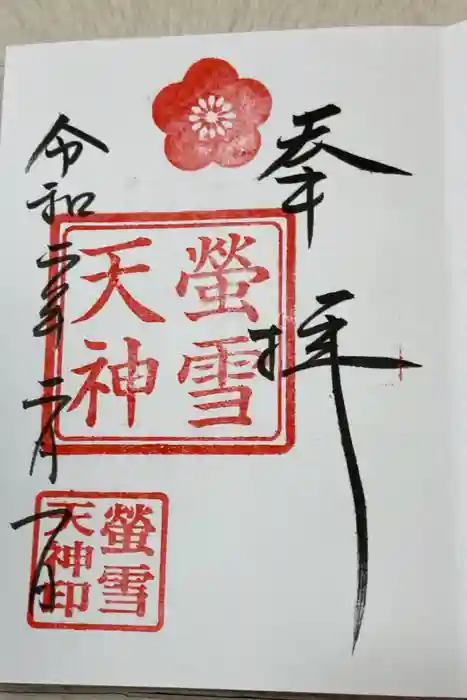 奉拝
螢雪
天神
令和二年二月一日
螢雪
天神印